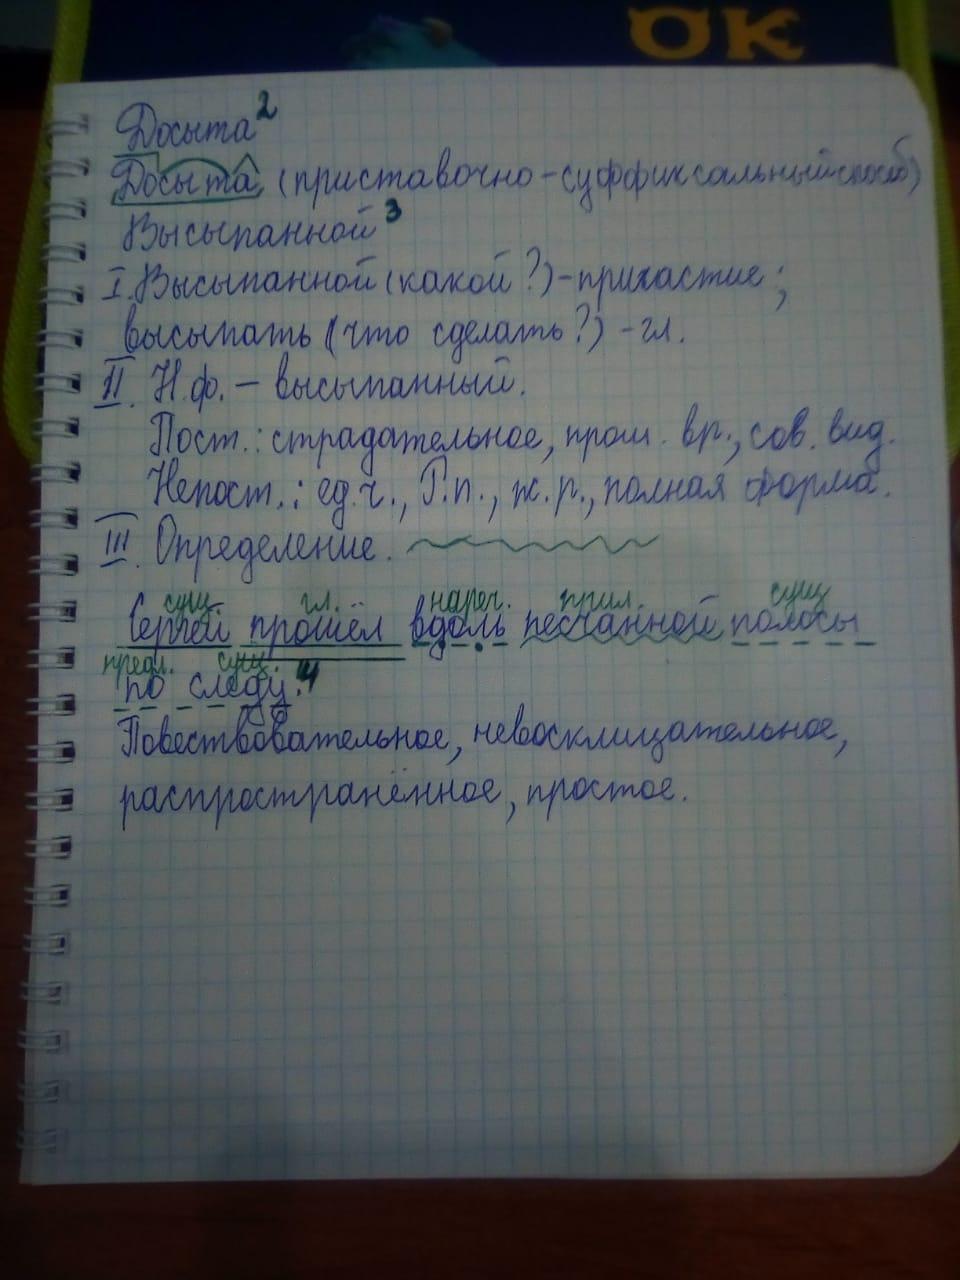 ОК
Досыта²
Досыта (приставочно-суффиксальный способ)
Высыпанной³
I. Высыпанной (какой?) - причастие;
высыпать (что сделать?) - гл.
II. Н.ф. - высыпанный.
Пост.: страдательное, прош. вр., сов. вид.
Непост.: ед.ч., Р.п., ж.р., полная форма.
III. Определение.
сущ. гл. нареч. прил. сущ
Сергей прошёл вдоль песчанной полосы
предл. сущ.
по следу.⁴
Повествовательное, невосклицательное,
распространённое, простое.